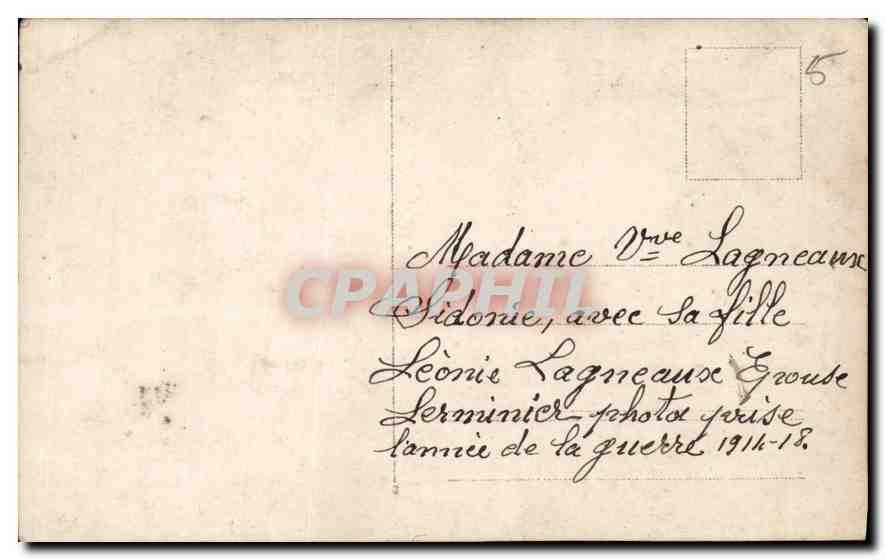 5
Madame Vve Lagneaux
CPAPHIL
Sidonie, avec sa fille
Léonie Lagneaux Epouse
Lerminier photo prise
l'année de la guerre 1914-18.